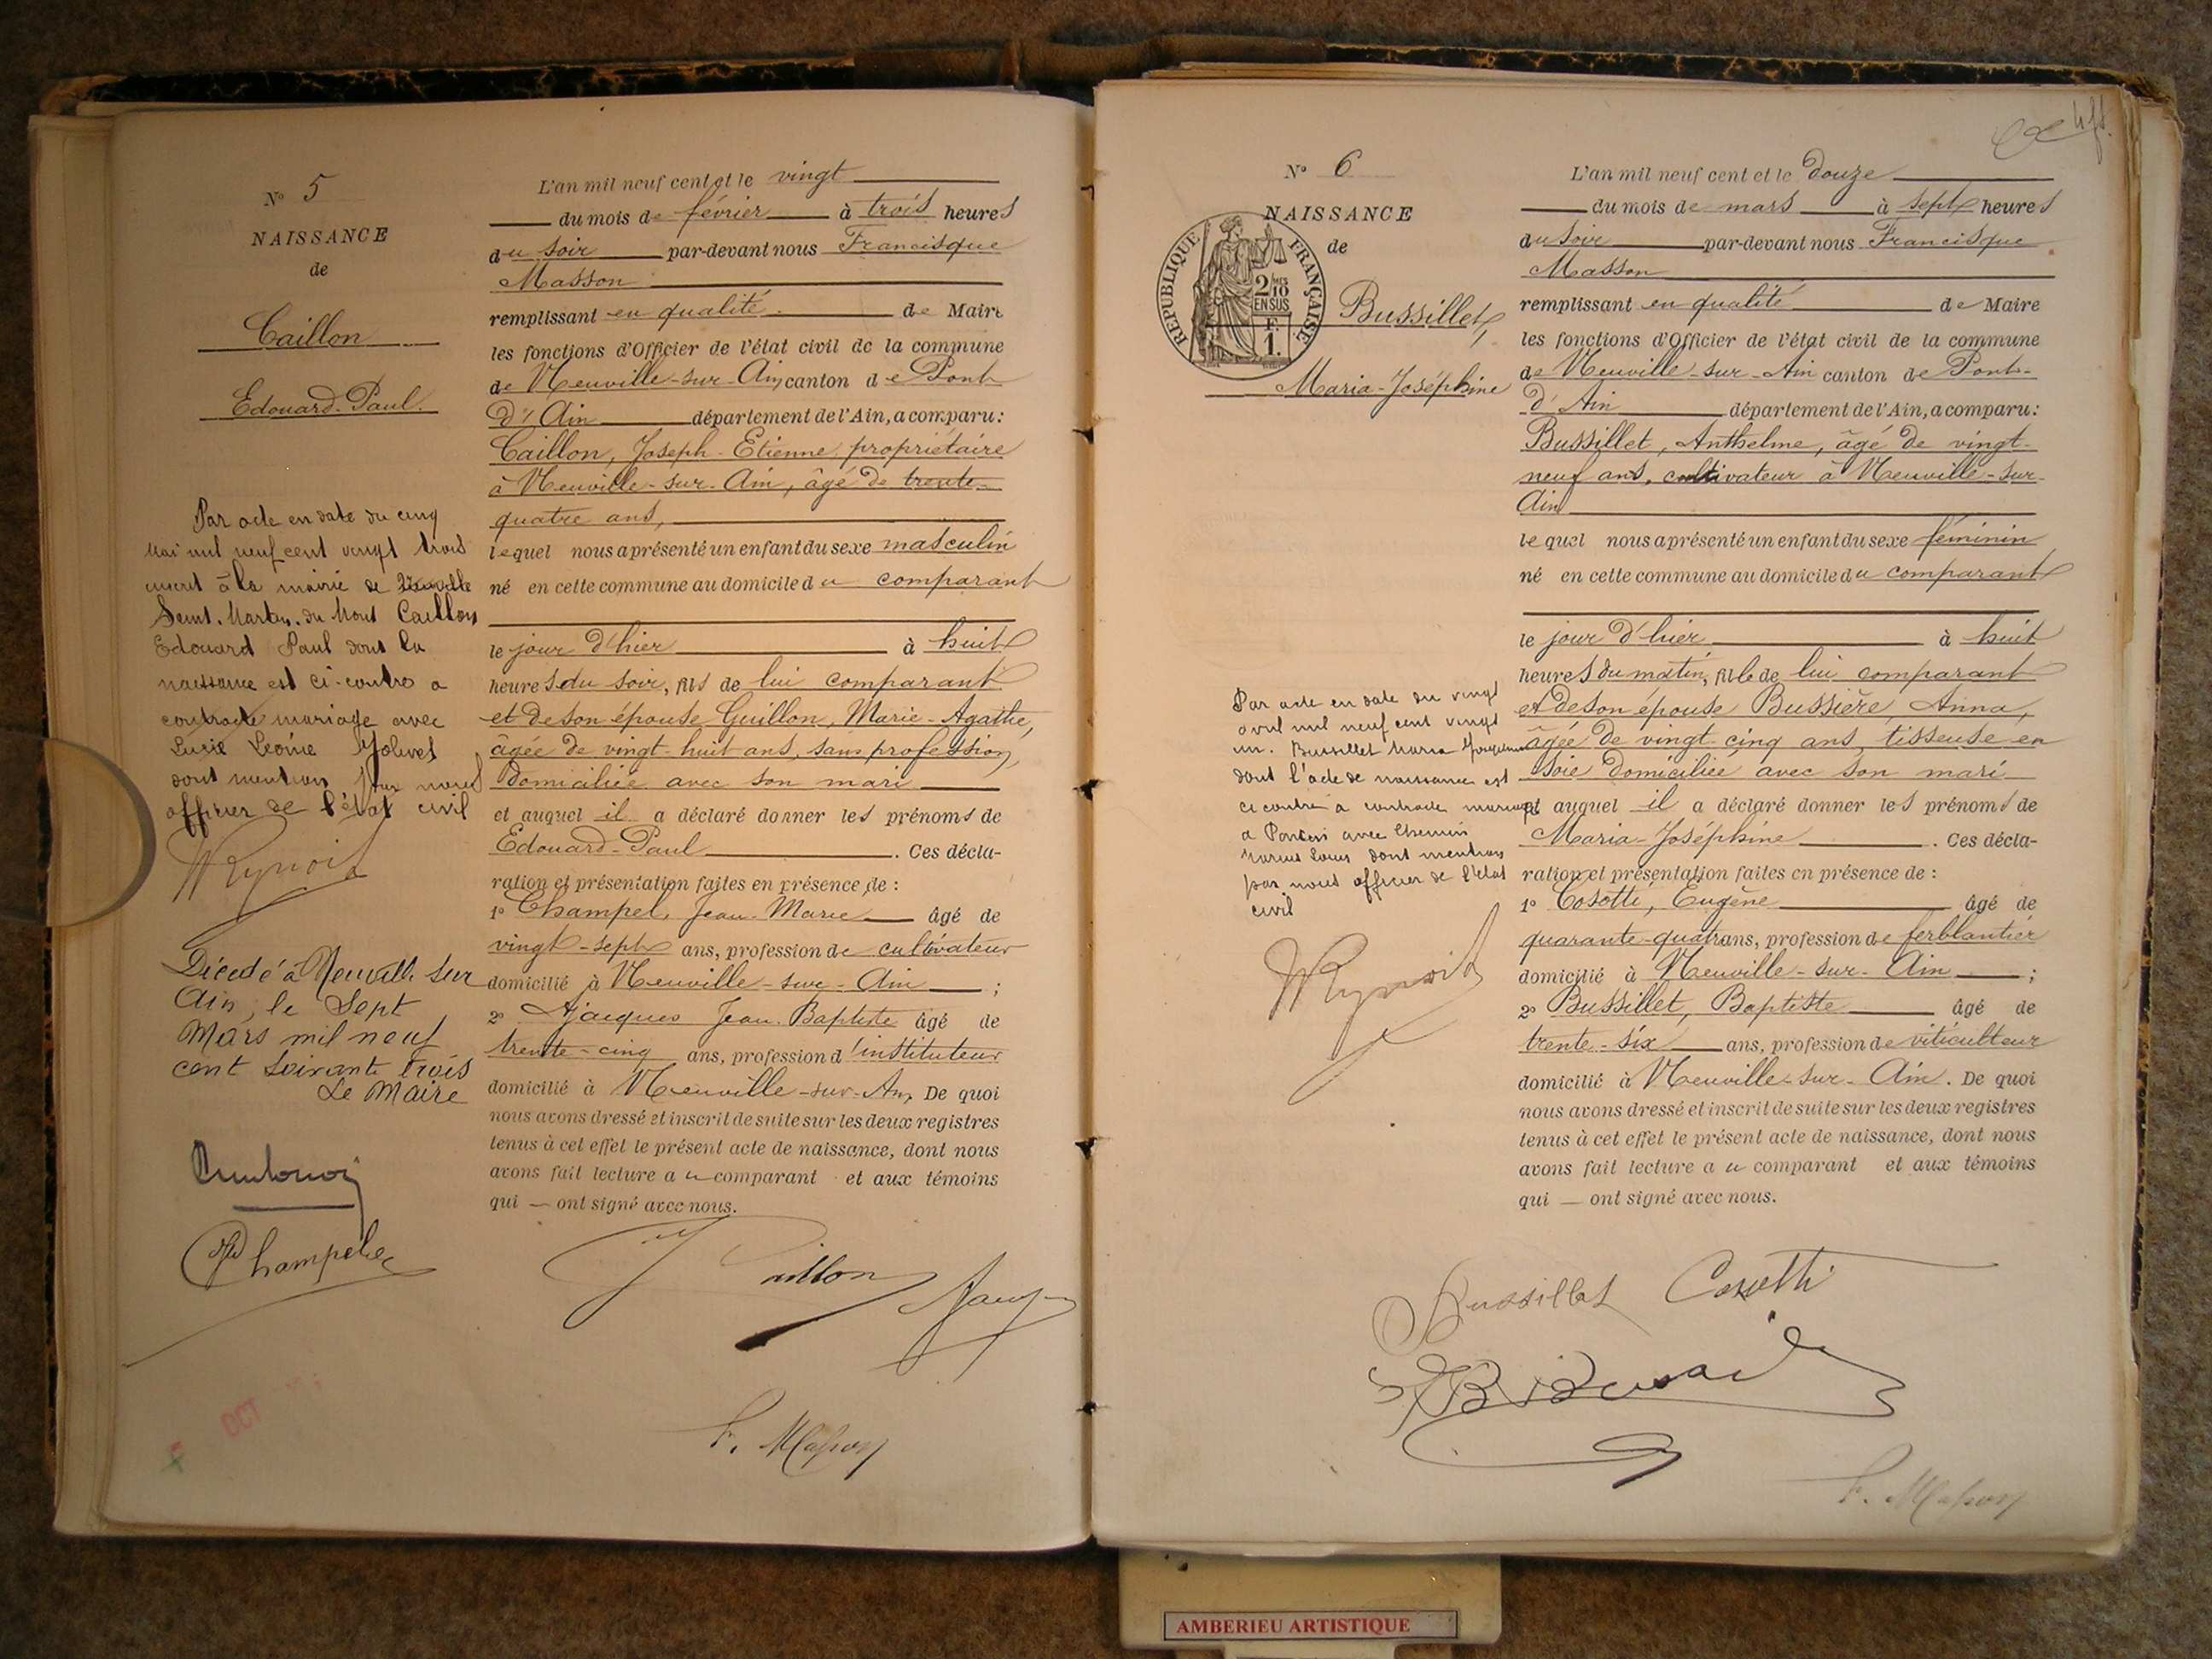 N° 5
NAISSANCE
de
Caillon
Edouard-Paul.
Par acte en date du cinq
Mai mil neuf cent vingt trois
à la mairie de
Saint. Martin. du Mont Caillon
Edouard Paul dont la
naissance est ci-contre a
contracté mariage avec
Lucie Léonie Jolivet
dont mention par nous
officier de l'état civil
Décédé à Neuville sur
Ain, le Sept
Mars mil neuf
cent soixante trois
Le Maire
L'an mil neuf cent et le vingt
du mois de février à trois heures
du soir par-devant nous Francisque
Masson
remplissant en qualité de Maire
les fonctions d'Officier de l'état civil de la commune
de Neuville-sur-Ain, canton de Pont
d'Ain département de l'Ain, a comparu:
Caillon, Joseph-Etienne, propriétaire
à Neuville-sur-Ain, âgé de trente-
quatre ans,
lequel nous a présenté un enfant du sexe masculin
né en cette commune au domicile du comparant
le jour d'hier à huit
heures du soir, fils de lui comparant
et de son épouse Guillon, Marie-Agathe,
âgée de vingt-huit ans, sans profession,
domiciliée avec son mari
et auquel il a déclaré donner les prénoms de
Edouard-Paul. Ces décla-
ration et présentation faites en présence de :
1° Champel, Jean-Marie âgé de
vingt-sept ans, profession de cultivateur
domicilié à Neuville-sur-Ain ;
2° Ajacques Jean-Baptiste âgé de
trente-cinq ans, profession d'instituteur
domicilié à Neuville-sur-Ain, De quoi
nous avons dressé et inscrit de suite sur les deux registres
tenus à cet effet le présent acte de naissance, dont nous
avons fait lecture au comparant et aux témoins
qui — ont signé avec nous.
Caillon
F. Masson
N° 6
NAISSANCE
de
RÉPUBLIQUE FRANÇAISE
2/10
EN SUS
F.
1.
Bussillet,
Maria-Joséphine
Par acte en date du vingt
avril mil neuf cent vingt
un. Bussillet Maria Joséphine
dont l'acte de naissance est
ci contre a contracté mariage
a Poncin avec Chemin
Marius Louis dont mention
par nous officier de l'état
civil
L'an mil neuf cent et le douze
du mois de mars à sept heures
du soir par-devant nous Francisque
Masson
remplissant en qualité de Maire
les fonctions d'Officier de l'état civil de la commune
de Neuville-sur-Ain canton de Pont-
d'Ain département de l'Ain, a comparu:
Bussillet, Anthelme, âgé de vingt-
neuf ans, cultivateur à Neuville-sur-
Ain
lequel nous a présenté un enfant du sexe féminin
né en cette commune au domicile du comparant
le jour d'hier à huit
heures du matin, fille de lui comparant
et de son épouse Bussière, Anna,
âgée de vingt-cinq ans, tisseuse en
soie domiciliée avec son mari
et auquel il a déclaré donner les prénoms de
Maria-Joséphine. Ces décla-
ration et présentation faites en présence de :
1° Cosotti, Eugène âgé de
quarante-quatre ans, profession de ferblantier
domicilié à Neuville-sur-Ain ;
2° Bussillet, Baptiste âgé de
trente-six ans, profession de viticulteur
domicilié à Neuville-sur-Ain. De quoi
nous avons dressé et inscrit de suite sur les deux registres
tenus à cet effet le présent acte de naissance, dont nous
avons fait lecture au comparant et aux témoins
qui — ont signé avec nous.
Bussillet Cosotti
F. Masson
AMBERIEU ARTISTIQUE